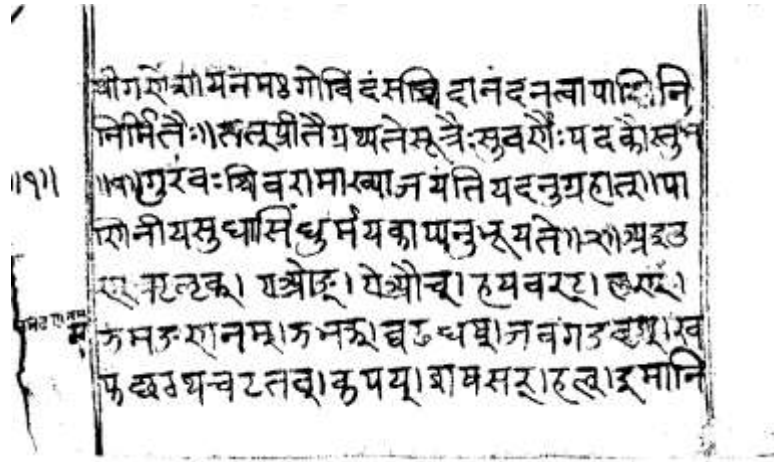 श्रीगणेशायनमः गोविंदंसच्चिदानंदंनत्वापाणिनि
निर्मितैः॥तत्प्रीतैग्रथ्यतेसूत्रैःसुवर्णैःपदकौस्तुभ
॥१॥गुरवःशिवरामाख्याजयंतियदनुग्रहात्॥पा
णिनीयसुधासिंधुर्मयकाप्यनुभूयते॥२॥अइउ
ण्ऋऌक्।एओङ्।ऐऔच्।हयवरट्।लण्।
ञमङणनम्।झभञ्।घढधष्।जबगडदश्।ख
फछठथचटतव्।कपय्।शषसर्।हल्।इमानि
॥१॥